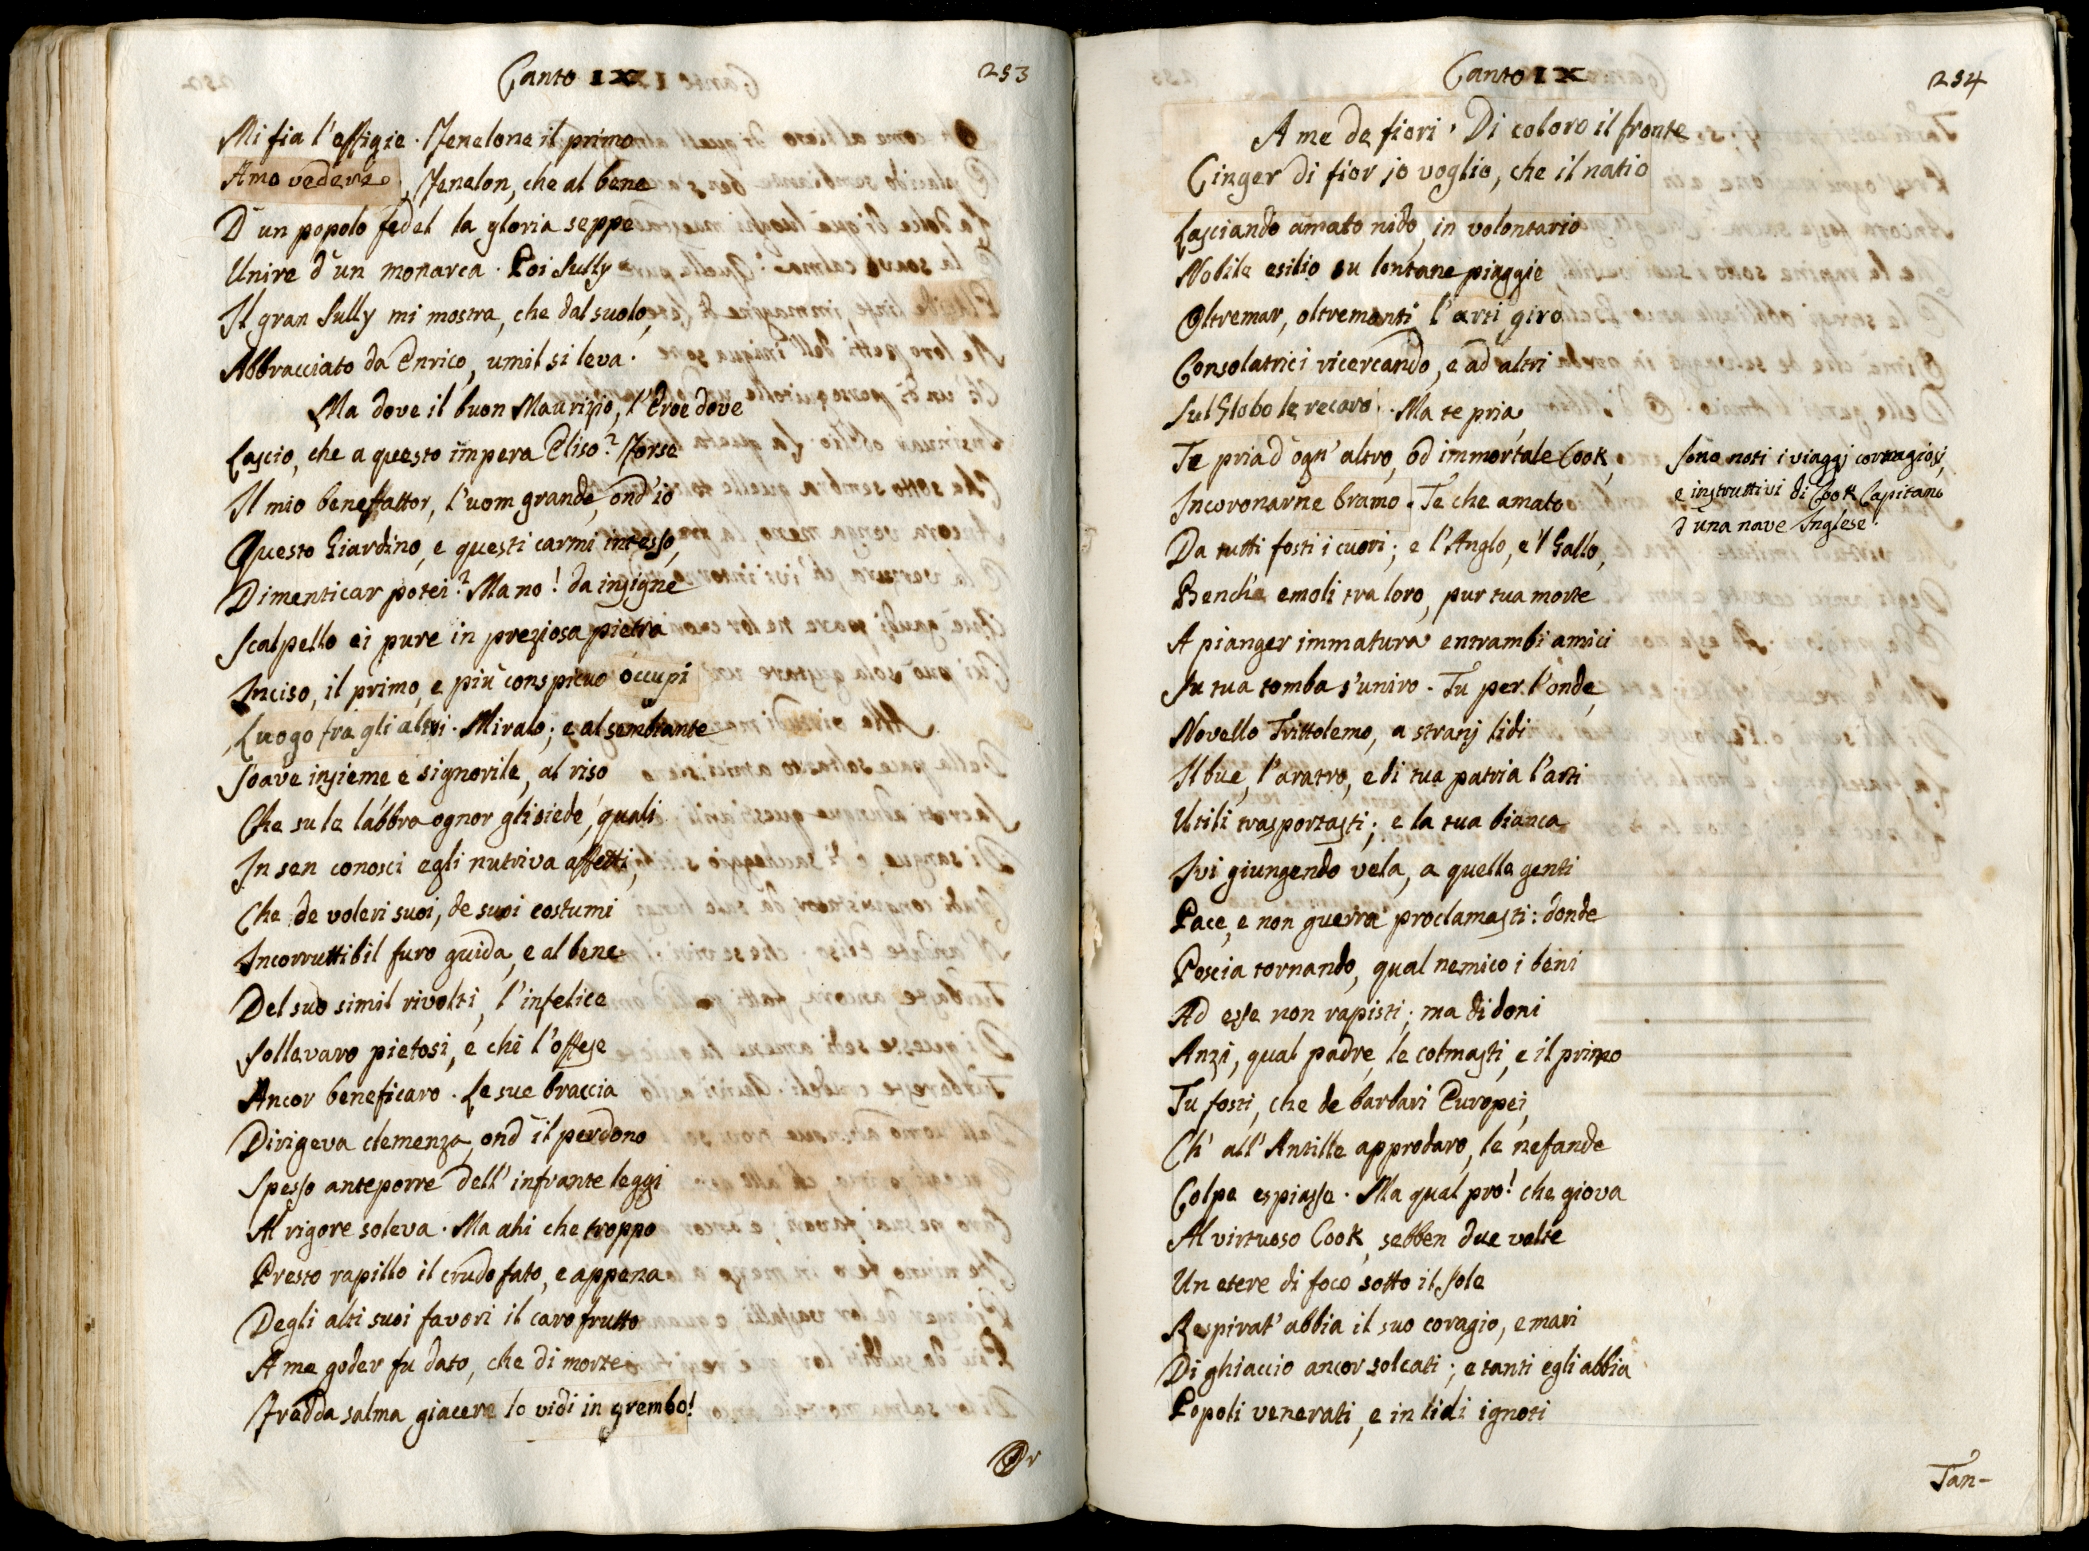 Canto IX
253
Mi fia l'effigie. Fenelone il primo
Amo vedere. Fenelon, che al bene
D'un popolo fedel la gloria seppe
Unire d'un monarca. Poi Sully
Il gran Sully mi mostra, che dal suolo,
Abbracciato da Enrico, umil si leva.
Ma dove il buon Maurizio, l'Eroe dove
Lascio, che a questo impera Eliso? Forse
Il mio benefattor, l'uom grande, ond'io
Questo Giardino, e questi carmi intesso,
Dimenticar potei? Ma no! da insigne
Scalpello ei pure in preziosa pietra
Inciso, il primo, e più conspicuo occupi
Luogo fra gli altri. Miralo; e al sembiante
Soave insieme e signorile, al riso
Che su le labbra ognor gli siede, quali
In sen conosci egli nutriva affetti,
Che de voleri suoi, de suoi costumi
Incorruttibil furo guida, e al bene
Del suo simil rivolti, l'infelice
Sollevaro pietosi, e chi l'offese
Ancor beneficaro. Le sue braccia
Dirigeva clemenza, ond'il perdono
Spesso anteporre dell'infrante leggi
Al rigore soleva. Ma ahi che troppo
Presto rapillo il crudo fato, e appena
Degli alti suoi favori il caro frutto
A me goder fu dato, che di morte
Fredda salma giacere lo vidi in grembo!
Dr
Canto IX
254
A me de fiori. Di coloro il fronte
Cinger di fior io voglio, che il natio
Lasciando amato nido, in volontario
Nobile esilio su lontane piaggie
Oltremar, oltremonti l'arti giro
Consolatrici ricercando, e ad altri
Sul Globo le recaro. Ma te pria,
Te pria d'ogn'altro, od immortale Cook,
Incoronarne bramo. Te che amato
Da tutti fosti i cuori; e l'Anglo, e'l Gallo,
Benchè emoli tra loro, pur tua morte
A pianger immatura entrambi amici
Su tua tomba s'uniro. Tu per l'onde,
Novello Trittolemo, a stranj lidi
Il bue, l'aratro, e di tua patria l'arti
Utili trasportasti; e la tua bianca
Ivi giungendo vela, a quelle genti
Pace, e non guerra proclamasti: donde
Poscia tornando, qual nemico i beni
Ad esse non rapisti; ma di doni
Anzi, qual padre, le colmasti, e il primo
Tu fosti, che de barbari Europei,
Ch'all'Antille approdaro, le nefande
Colpe espiasse. Ma qual pro! che giova
Al virtuoso Cook, sebben due volte
Un etere di foco sotto il Sole
Respirat'abbia il suo coragio, e mari
Di ghiaccio ancor solcati; e tanti egli abbia
Popoli venerati, e in lidi ignoti
Tan-
Sono noti i viaggj corragiosi,
e instruttivi di Cook Capitano
d'una nave Inglese.